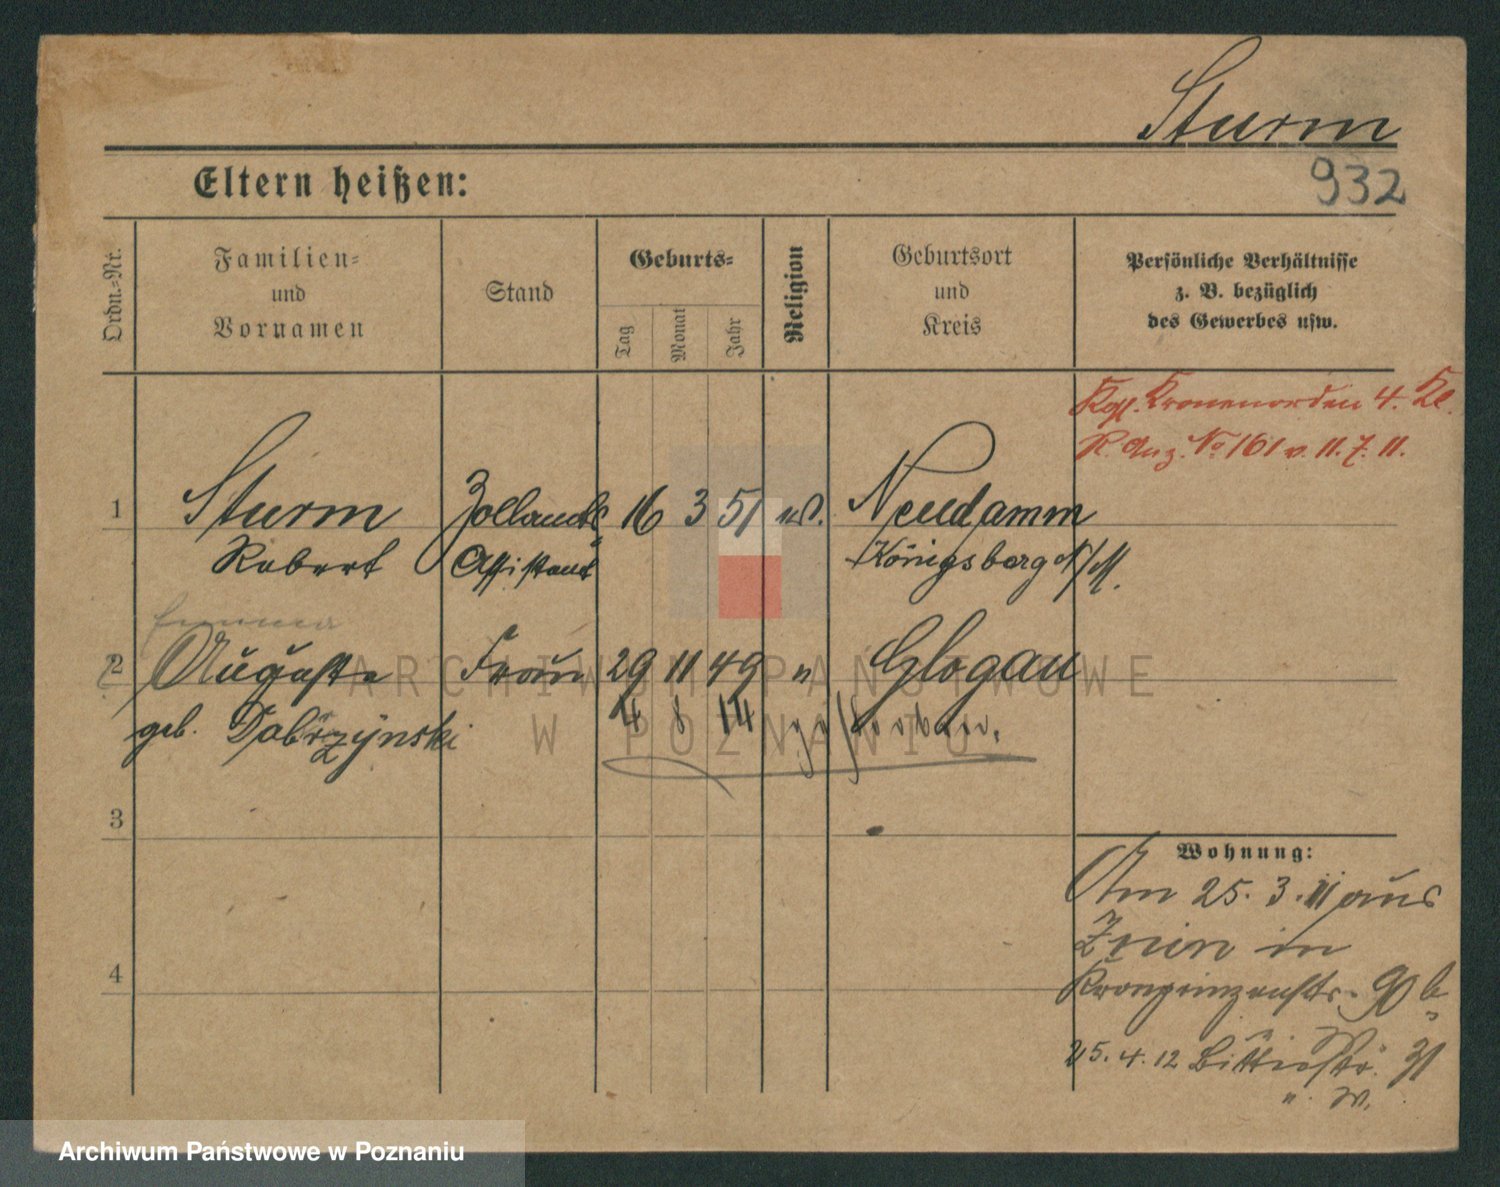 Sturm
932
Eltern heißen:
Ordn.-Nr.
Familien-
und
Vornamen
Stand
Geburts-
Tag
Monat
Jahr
Religion
Geburtsort
und
Kreis
Persönliche Verhältnisse
z. B. bezüglich
des Gewerbes usw.
Kgl. Kronenorden 4. Kl.
R. Anz. No 161 v. 11. 7. 11.
1 Sturm Zollamts 16 3 51 Neudamm
Robert Assistent Königsberg N/M.
Emma
2 Auguste Frau 29 11 49 " Glogau
geb. Dobrzynski 4 8 14 gestorben.
3
4
Wohnung:
Am 25. 3. 11 aus
Znin in
Kronprinzenstr. 90 b
25. 4. 12 31
" W.
ARCHIWUM PAŃSTWOWE
W POZNANIU
Archiwum Państwowe w Poznaniu